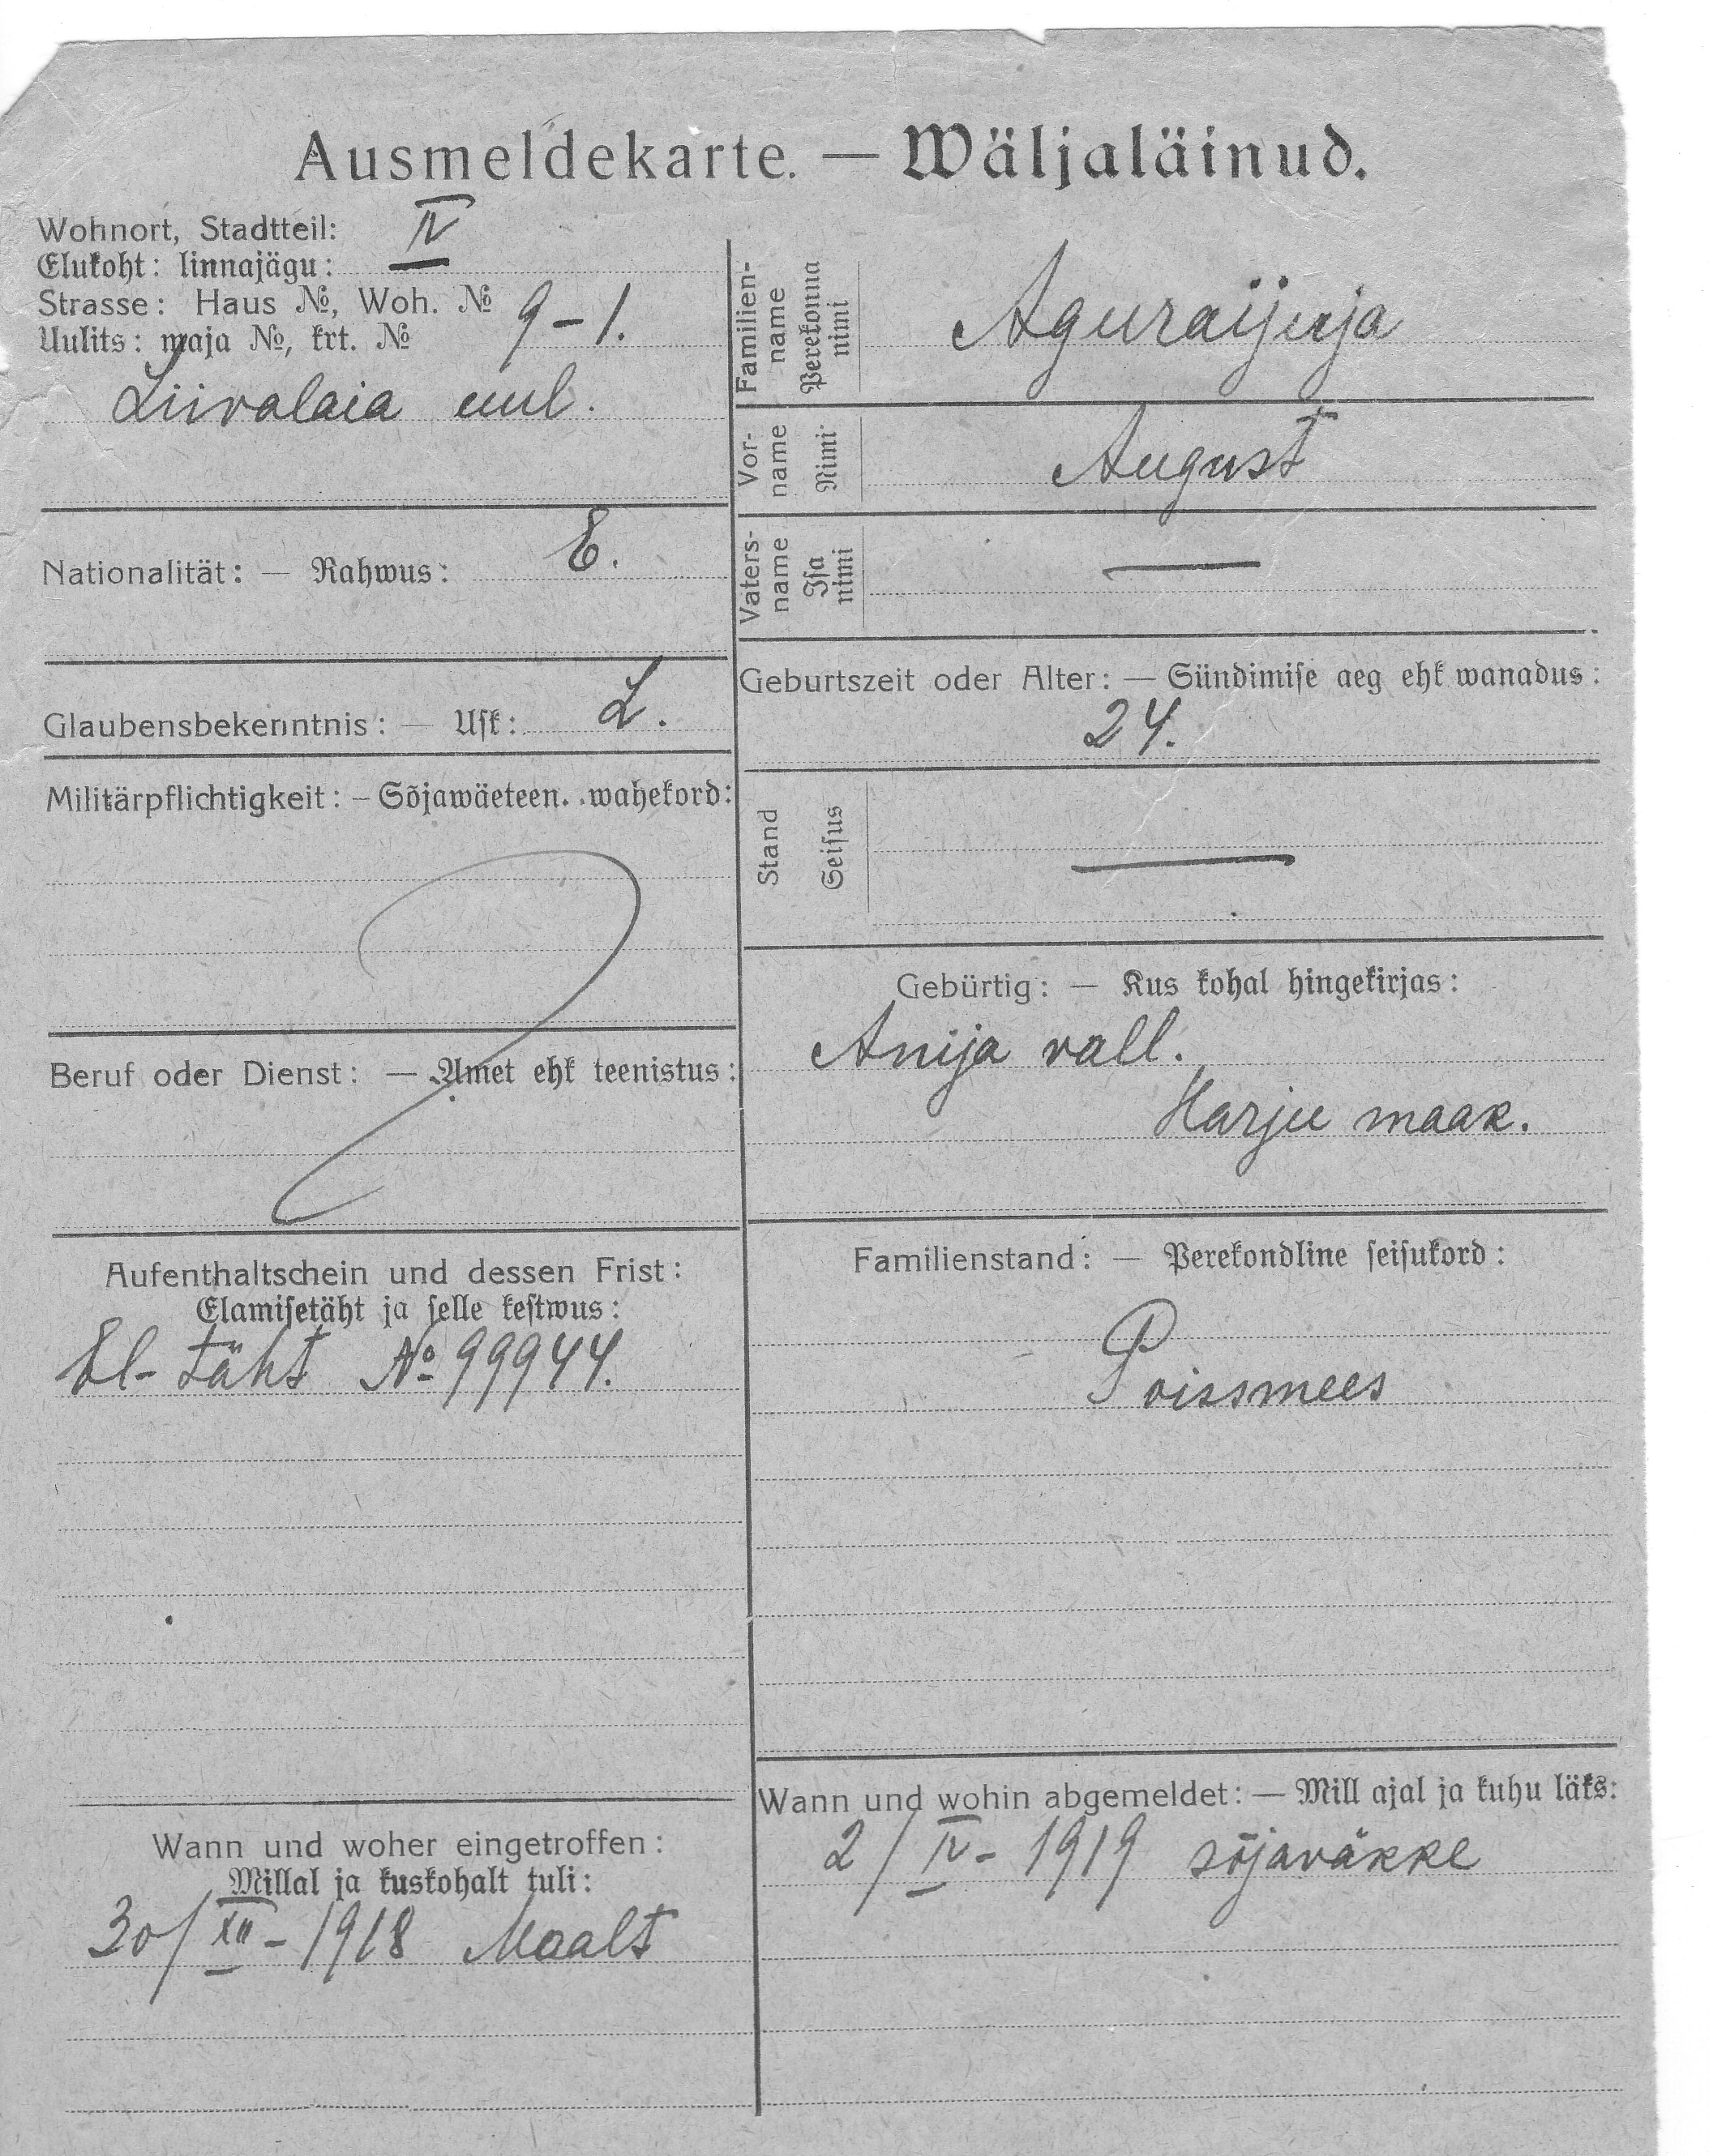 Ausmeldekarte. — Wäljaläinud.
Wohnort, Stadtteil: IV
Elukoht: linnajägu:
Strasse: Haus №, Woh. № 9-1.
Uulits: maja №, krt. №
Liivalaia uul.
Nationalität: — Rahwus: E.
Glaubensbekenntnis: — Usk: L.
Militärpflichtigkeit: – Sõjawäeteen. wahekord:
Beruf oder Dienst: — Amet ehk teenistus:
Aufenthaltschein und dessen Frist:
Elamisetäht ja selle kestwus:
El- täht № 99944.
Wann und woher eingetroffen:
Millal ja kuskohalt tuli:
30/XII-1918 Maalt
Familien-
name
Perekonna
nimi
Vor-
name
Nimi
August
Vaters-
name
Isa
nimi
—
Geburtszeit oder Alter: — Sündimise aeg ehk wanadus:
24.
Stand
Seisus
—
Gebürtig: — Kus kohal hingekirjas:
Anija vall.
Harju maak.
Familienstand: — Perekondline seisukord:
Poissmees
Wann und wohin abgemeldet: — Mill ajal ja kuhu läks:
2/IV-1919 sõjaväkke